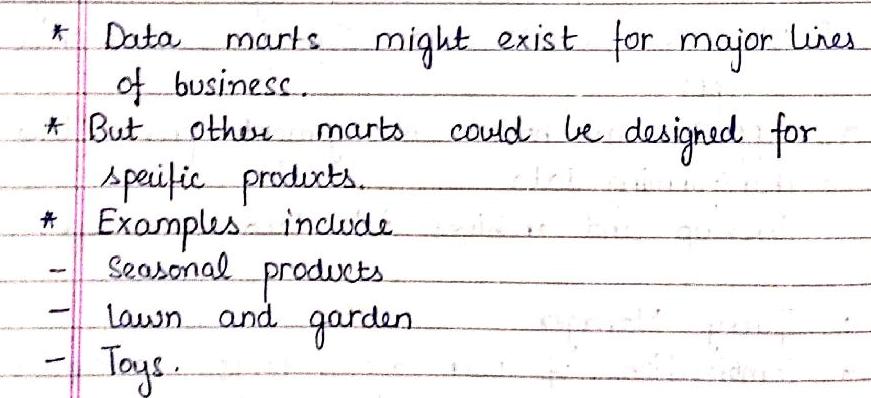 * Data marts might exist for major lines
of business.
* But other marts could be designed for
specific products.
* Examples include
- Seasonal products
- Lawn and garden
- Toys.